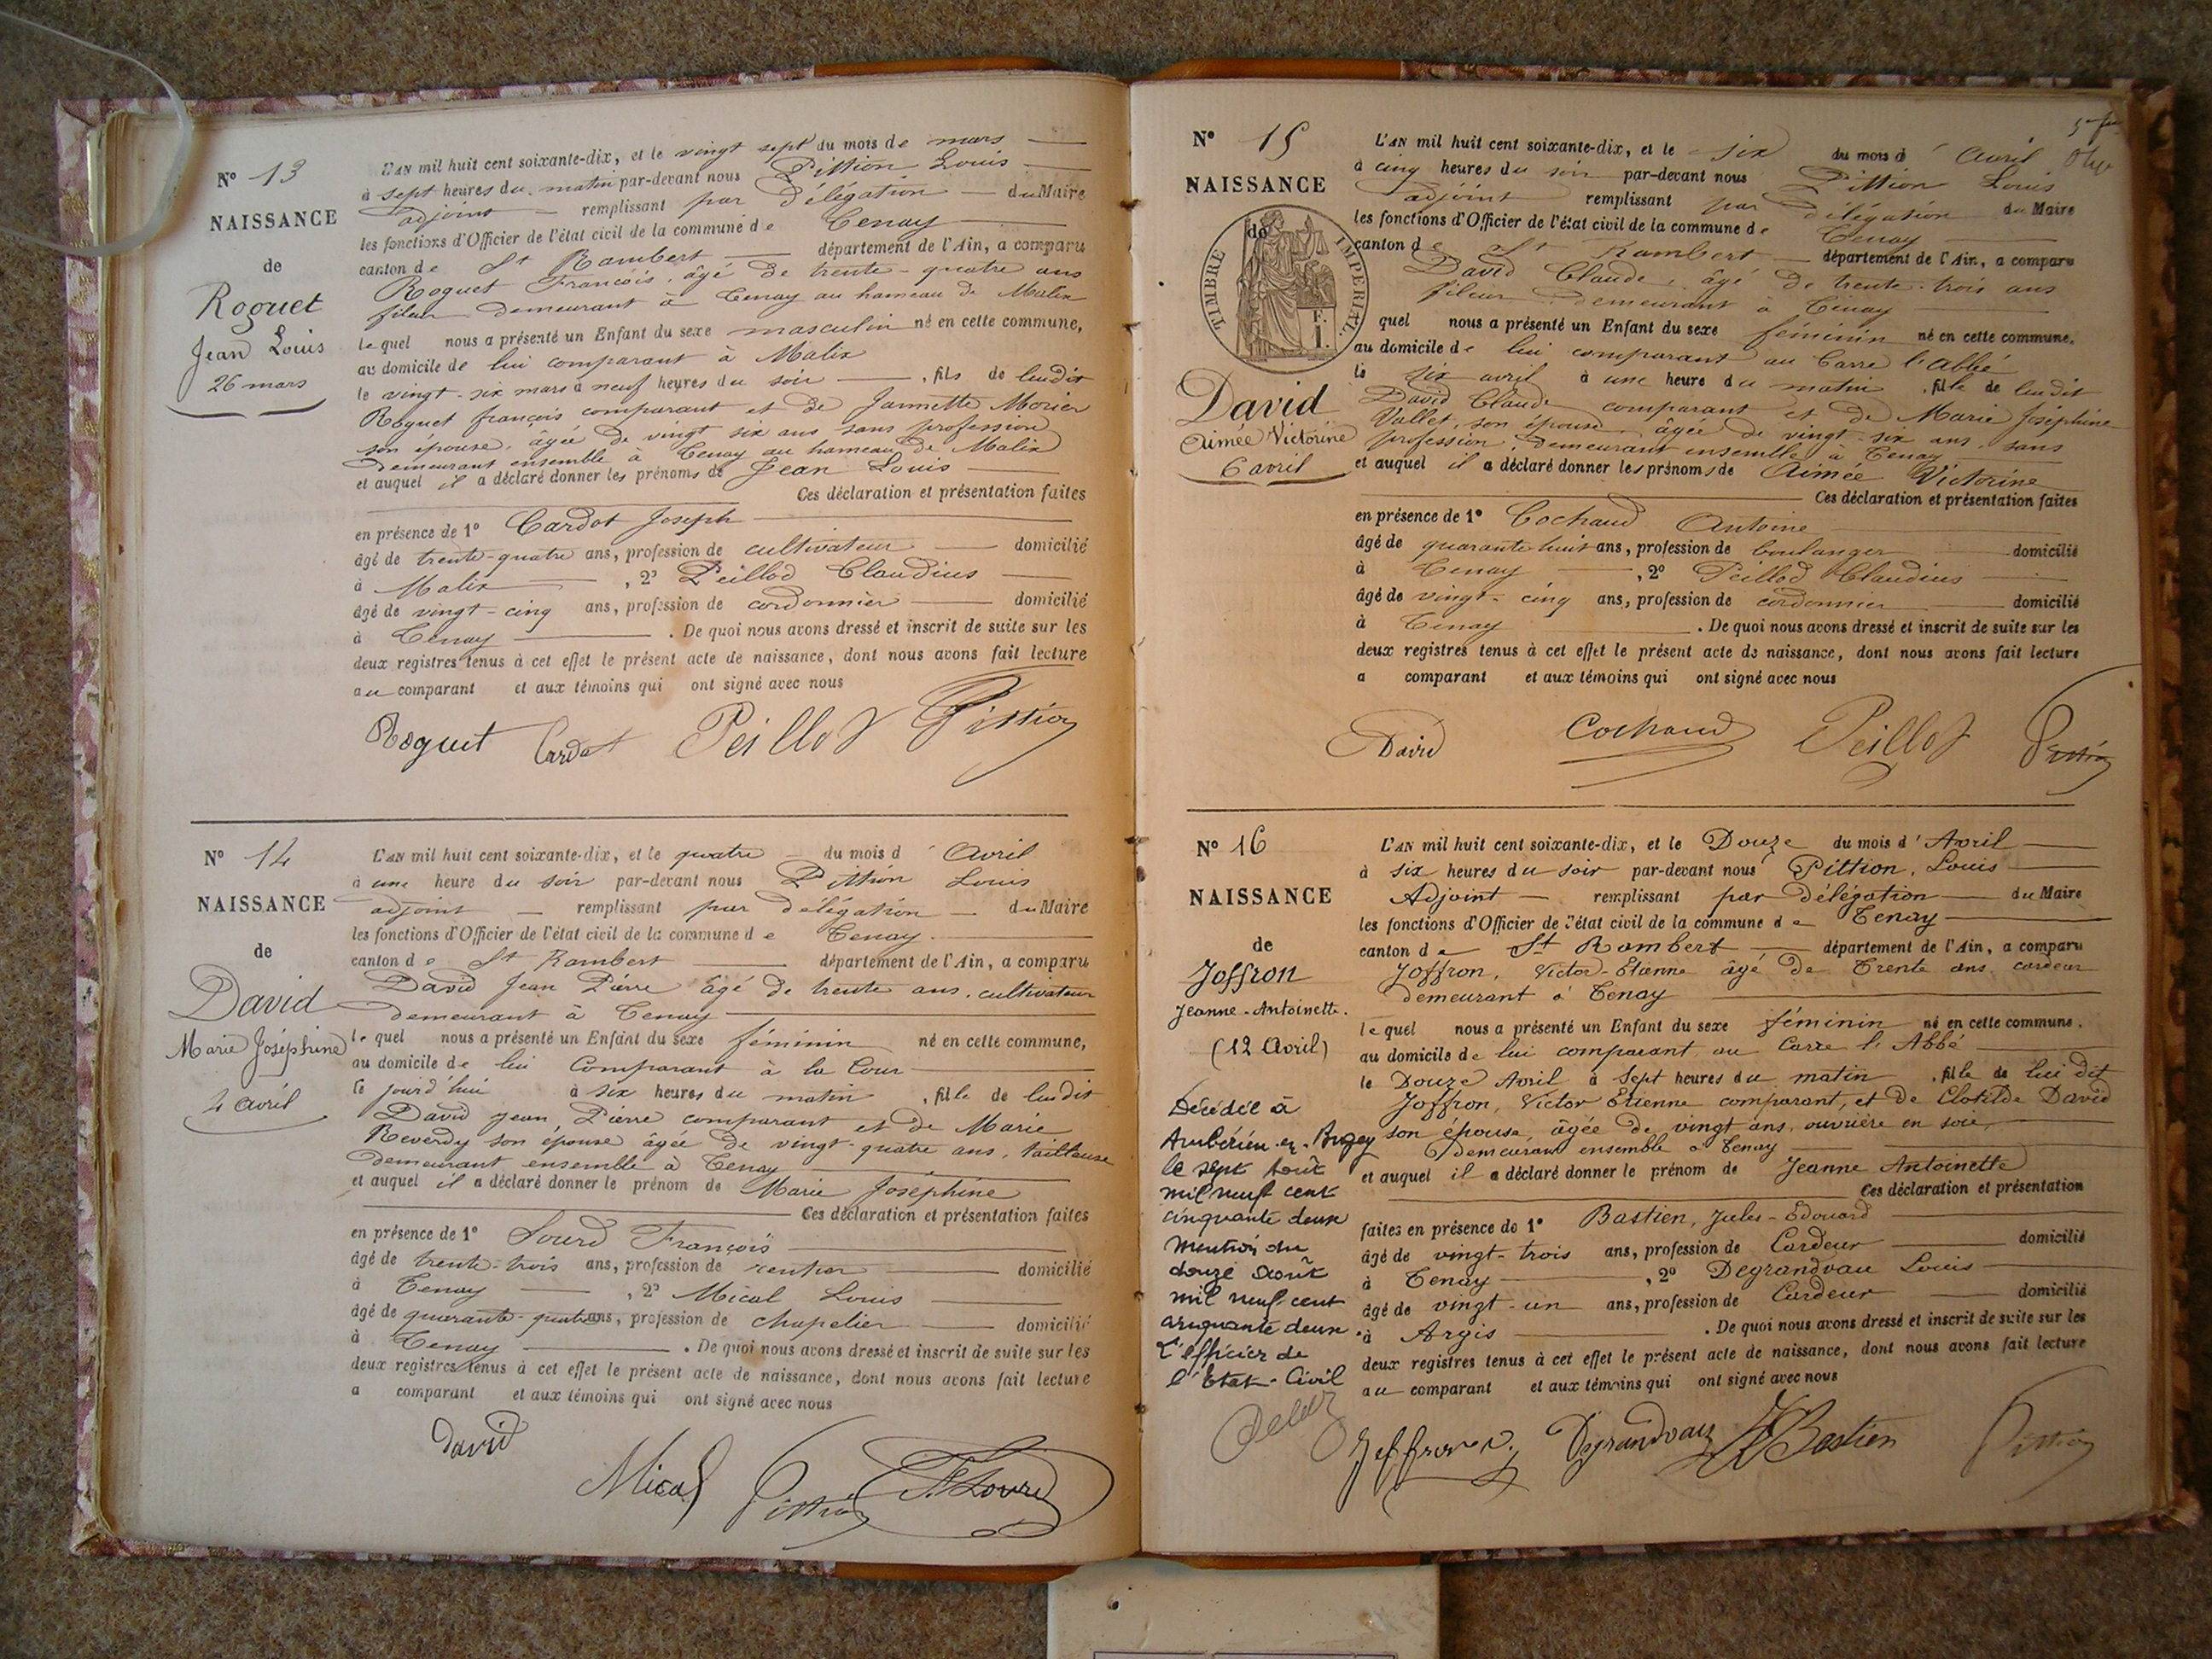 N° 13
NAISSANCE
de
Roguet
Jean Louis
26 mars
L'AN mil huit cent soixante-dix, et le vingt sept du mois de mars
à sept heures du matin par-devant nous Pittion Louis
adjoint remplissant par délégation du Maire
les fonctions d'Officier de l'état civil de la commune de Tenay
canton de St Rambert département de l'Ain, a comparu
Roguet François, âgé de trente-quatre ans
fileur demeurant à Tenay au hameau de Malix
lequel nous a présenté un Enfant du sexe masculin né en cette commune,
au domicile de lui comparant à Malix
le vingt-six mars à neuf heures du soir, fils de ludit
Roguet françois comparant et de Jannette Morier
son épouse, âgée de vingt six ans sans profession
demeurant ensemble à Tenay au hameau de Malix
et auquel il a déclaré donner les prénoms de Jean Louis
Ces déclaration et présentation faites
en présence de 1° Cardot Joseph
âgé de trente-quatre ans, profession de cultivateur domicilié
à Malix, 2° Peillod Claudius
âgé de vingt-cinq ans, profession de cordonnier domicilié
à Tenay. De quoi nous avons dressé et inscrit de suite sur les
deux registres tenus à cet effet le présent acte de naissance, dont nous avons fait lecture
au comparant et aux témoins qui ont signé avec nous
Roguet Cardot Peillod Pittion
N° 14
NAISSANCE
de
David
Marie Joséphine
4 avril
L'AN mil huit cent soixante-dix, et le quatre du mois d'Avril
à une heure du soir par-devant nous Pittion Louis
adjoint remplissant par délégation du Maire
les fonctions d'Officier de l'état civil de la commune de Tenay
canton de St Rambert département de l'Ain, a comparu
David Jean Pierre âgé de trente ans, cultivateur
demeurant à Tenay
lequel nous a présenté un Enfant du sexe féminin né en cette commune,
au domicile de lui Comparant à la Cour
le jourd'hui à six heures du matin, fille de ludit
David Jean Pierre comparant et de Marie
Reverdy son épouse âgée de vingt-quatre ans, tailleuse
demeurant ensemble à Tenay
et auquel il a déclaré donner le prénom de Marie Joséphine
Ces déclaration et présentation faites
en présence de 1° Lourd François
âgé de trente-trois ans, profession de rentier domicilié
à Tenay, 2° Mical Louis
âgé de quarante-quatre ans, profession de chapelier domicilié
à Tenay. De quoi nous avons dressé et inscrit de suite sur les
deux registres tenus à cet effet le présent acte de naissance, dont nous avons fait lecture
a comparant et aux témoins qui ont signé avec nous
David
Mical Pittion F. Lourd
N° 15
NAISSANCE
de
TIMBRE IMPERIAL
David
Aimée Victorine
6 avril
L'AN mil huit cent soixante-dix, et le six du mois d'Avril
à cinq heures du soir par-devant nous Pittion Louis
adjoint remplissant par délégation du Maire
les fonctions d'Officier de l'état civil de la commune de Tenay
canton de St Rambert département de l'Ain, a comparu
David Claude, âgé de trente-trois ans
fileur demeurant à Tenay
quel nous a présenté un Enfant du sexe féminin né en cette commune,
au domicile de lui comparant au Carre l'Abbé
le six avril à une heure du matin, fille de ludit
David Claude comparant et de Marie Joséphine
Vallet, son épouse âgée de vingt-six ans, sans
profession demeurant ensemble à Tenay
et auquel il a déclaré donner les prénoms de Aimée Victorine
Ces déclaration et présentation faites
en présence de 1° Cochaud Antoine
âgé de quarante huit ans, profession de boulanger domicilié
à Tenay, 2° Peillod Claudius
âgé de vingt-cinq ans, profession de cordonnier domicilié
à Tenay. De quoi nous avons dressé et inscrit de suite sur les
deux registres tenus à cet effet le présent acte de naissance, dont nous avons fait lecture
a comparant et aux témoins qui ont signé avec nous
David Cochaud Peillod Pittion
N° 16
NAISSANCE
de
Joffron
Jeanne-Antoinette.
(12 Avril)
Décédée à
Ambérieu-en-Bugey
le sept Août
mil neuf cent
cinquante deux
Mention du
douze Août
mil neuf cent
cinquante deux.
L'Officier de
l'Etat-Civil
L'AN mil huit cent soixante-dix, et le Douze du mois d'Avril
à six heures du soir par-devant nous Pittion, Louis
Adjoint remplissant par délégation du Maire
les fonctions d'Officier de l'état civil de la commune de Tenay
canton de St Rambert département de l'Ain, a comparu
Joffron, Victor-Etienne âgé de Trente ans cardeur
demeurant à Tenay
lequel nous a présenté un Enfant du sexe féminin né en cette commune.
au domicile de lui comparant au Carre l'Abbé
le Douze Avril à Sept heures du matin, fille de lui dit
Joffron, Victor Etienne comparant, et de Clotilde David
son épouse, âgée de vingt ans, ouvrière en soie,
demeurant ensemble à Tenay
et auquel il a déclaré donner le prénom de Jeanne Antoinette
Ces déclaration et présentation
faites en présence de 1° Bastien, Jules-Edouard
âgé de vingt-trois ans, profession de Cardeur domicilié
à Tenay, 2° Degrandvau Louis
âgé de vingt-un ans, profession de Cardeur domicilié
à Argis. De quoi nous avons dressé et inscrit de suite sur les
deux registres tenus à cet effet le présent acte de naissance, dont nous avons fait lecture
au comparant et aux témoins qui ont signé avec nous
Joffron v. Degrandvau Bastien Pittion